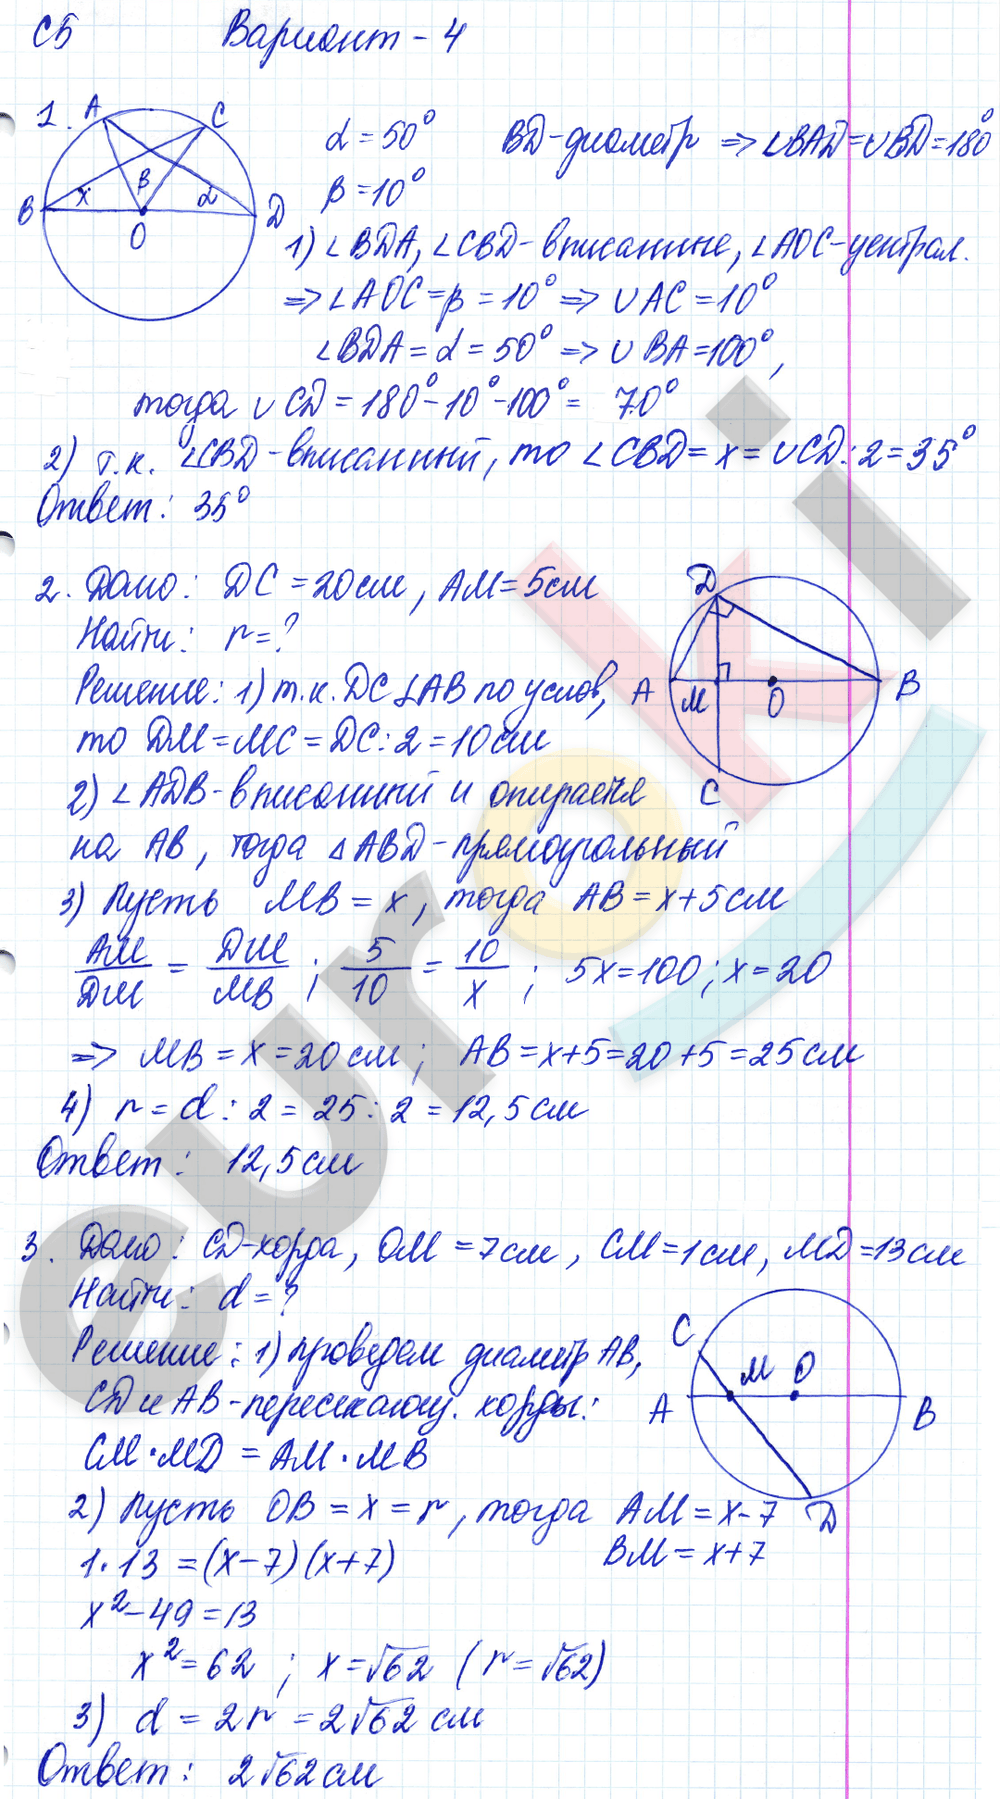 С5 Вариант - 4
1. A C B D O x β α
α = 50° BD - диаметр => ∠BAD = ∪BD = 180°
β = 10°
1) ∠BDA, ∠CBD - вписанные, ∠AOC - централ.
=> ∠AOC = β = 10° => ∪AC = 10°
∠BDA = α = 50° => ∪BA = 100°,
тогда ∪CD = 180° - 10° - 100° = 70°
2) т.к. ∠CBD - вписанный, то ∠CBD = x = ∪CD : 2 = 35°
Ответ: 35°
2. Дано: DC = 20 см, AM = 5 см
Найти: r = ?
Решение: 1) т.к. DC ⊥ AB по услов,
то DM = MC = DC : 2 = 10 см
2) ∠ADB - вписанный и опирается
на AB, тогда △ABD - прямоугольный
Д A M O B C
3) Пусть MB = x, тогда AB = x + 5 см
AM/DM = DM/MB ; 5/10 = 10/x ; 5x = 100 ; x = 20
=> MB = x = 20 см ; AB = x + 5 = 20 + 5 = 25 см
4) r = d : 2 = 25 : 2 = 12,5 см
Ответ: 12,5 см
3. Дано: CD - хорда, OM = 7 см, CM = 1 см, MD = 13 см
Найти: d = ?
Решение: 1) проведем диаметр AB,
CD и AB - пересекающ. хорды:
CM · MD = AM · MB
C M O A B Д
2) Пусть OB = x = r, тогда AM = x - 7
BM = x + 7
1 · 13 = (x - 7)(x + 7)
x² - 49 = 13
x² = 62 ; x = √62 (r = √62)
3) d = 2r = 2√62 см
Ответ: 2√62 см
euroki